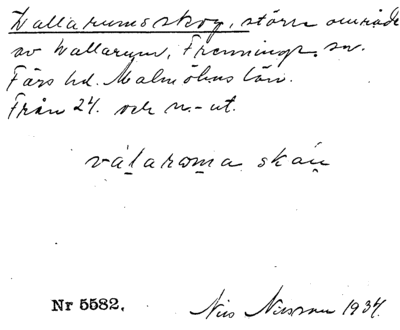 Wallarumsskog, större område
av Wallarum, Frenninge sn.
Färs hd. Malmöhus län.
Från 24. och n.-ut.
válaroma skóu
Nr 5582.
Nils 1934.